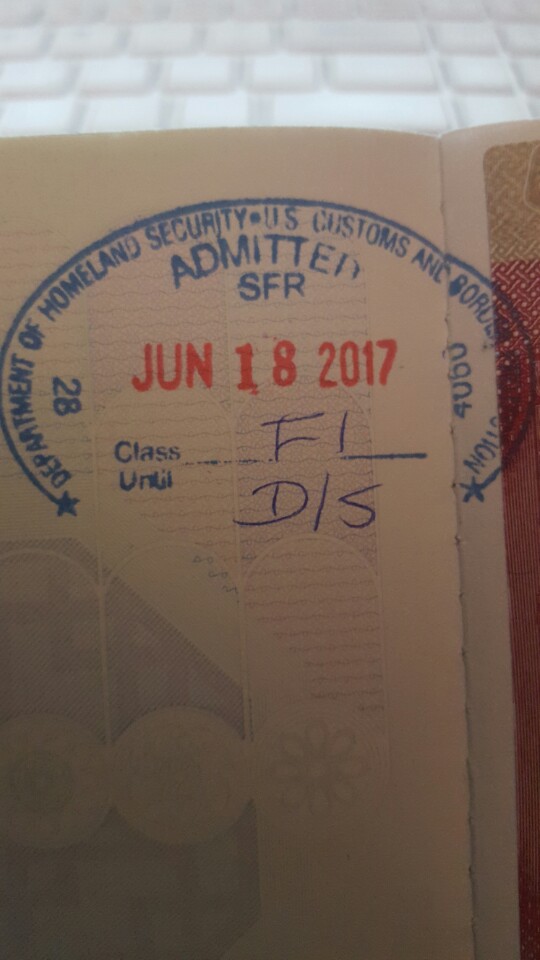 DEPARTMENT OF HOMELAND SECURITY • U.S. CUSTOMS AND
ADMITTED
SFR
28
JUN 18 2017
Class F1
Until D/S